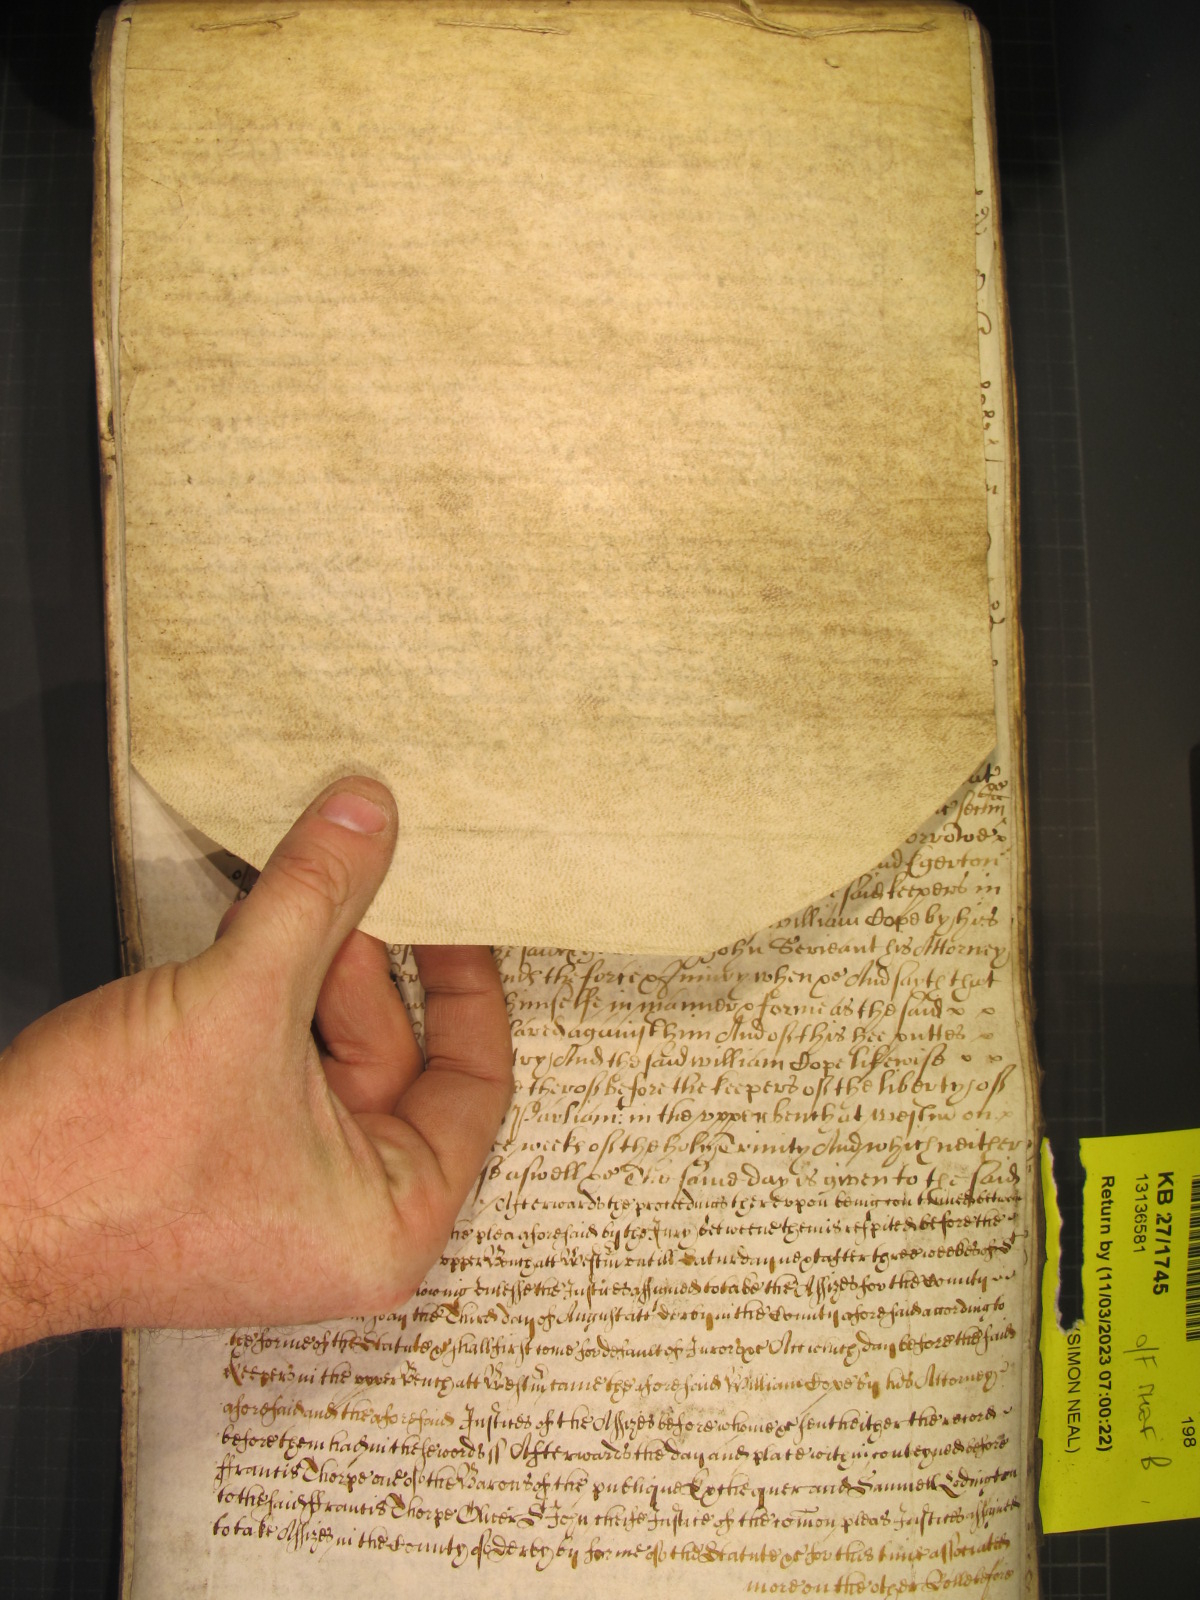 at
secim
orrowe
nd Egerton
said keepers in
william Cope by his
John Serveant his Attorney
And the force & Iniury when &c And sayth that
himselfe in manner & forme as the said
lared against him And of this hee puttes
try And the said william Cope likewise
therof before the keepers of the liberty of
Parliamt in the vpper bench at westm on
weeks of the Holy Trinity And which neither
se aswell &c The same day is given to the said
Afterwards the proceedings therevpon being continued betweene
the plea aforesaid by the Jury betweene them is respited before the
vpper Bench att Westm vntill Saturday next after three weekes of
lowing vnlesse the Justices assigned to take the Assizes for the County
day the Third day of August att derby in the County aforesaid according to
the forme of the Statute &c shall first come for default of Jurors &c Att which day before the said
Keepers in the vpper Bench att Westm came the aforesaid William Cope by his Attorney
aforesaid and the aforesaid Justices of the Assizes before whome &c sent hither the record
before them had in these words ss Afterwards the day and place within conteyned before
ffrancis Thorpe one of the Barons of the publique Exchequer and Samuell Lodington
to the said ffrancis Thorpe Oliver St John cheife Justice of the comon pleas Justices assigned
to take Assizes in the County of derby by forme of the Statute &c for this time associated
more on the other Rolle before
KB 27/1745
13136581
Return by (11/03/2023 07:00:22)
(SIMON NEAL)
198